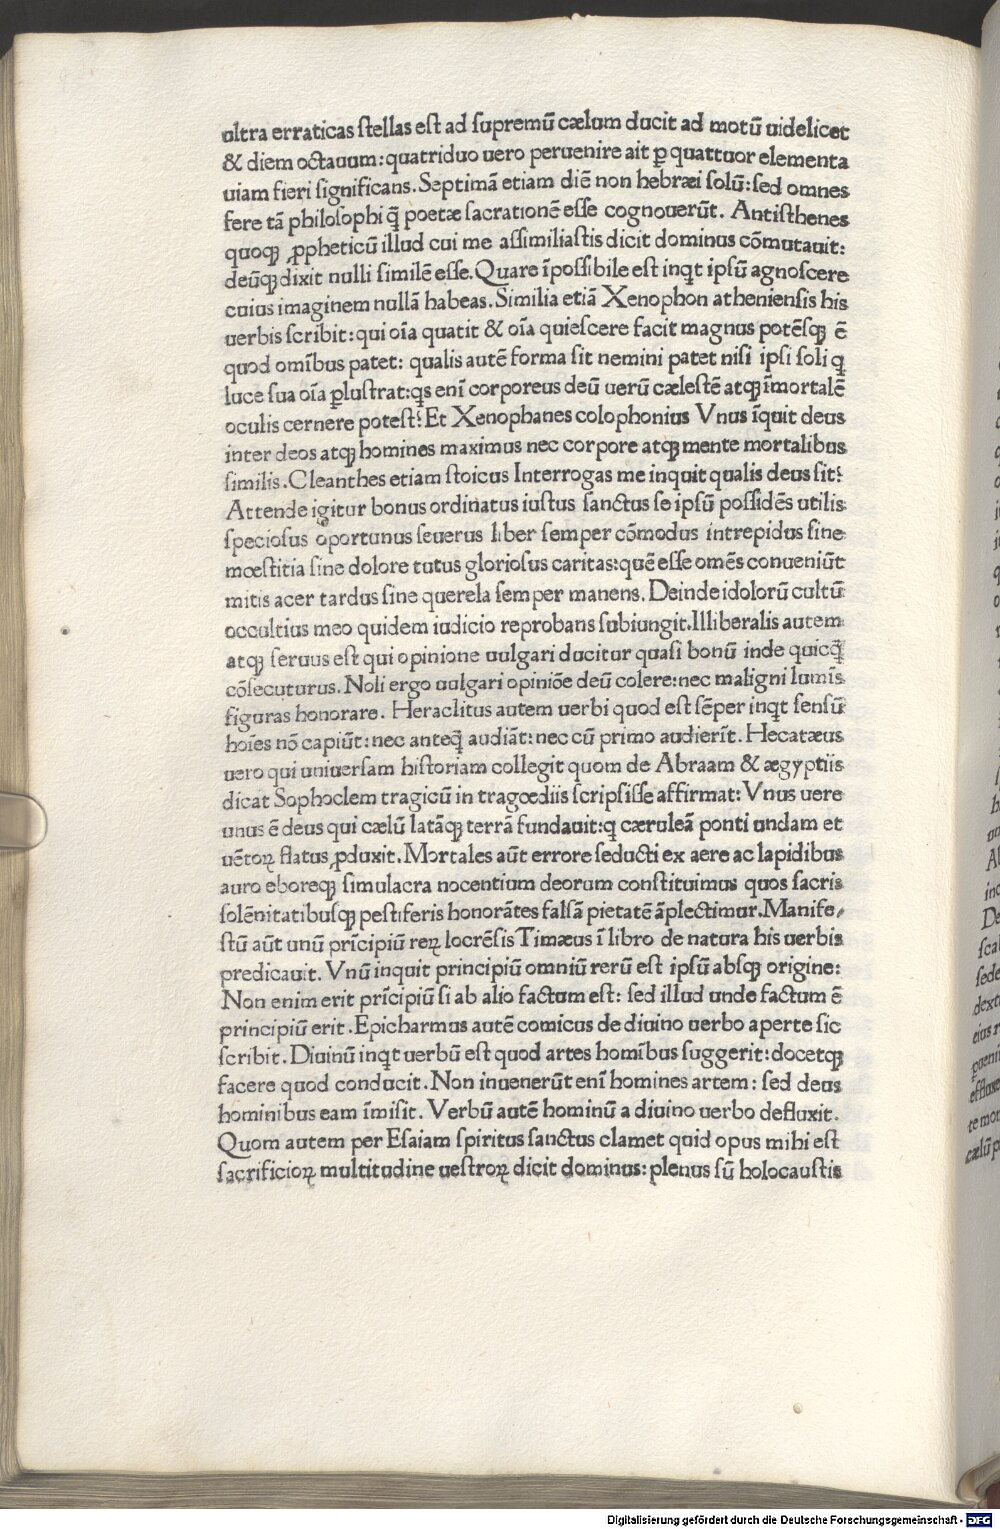 ultra erraticas ſtellas eſt ad ſupremũ cælum ducit ad motũ uidelicet
& diem octauum: quatriduo uero peruenire ait ꝑ quattuor elementa
uiam fieri ſignificans. Septimã etiam diẽ non hebræi ſolũ: ſed omnes
fere tã philoſophi q̃ poetæ ſacrationẽ eſſe cognouerũt. Antiſthenes
quoqꝫ ꝓpheticũ illud cui me aſſimiliaſtis dicit dominus cõmutauit:
deũqꝫ dixit nulli ſimilẽ eſſe. Quare ĩpoſſibile eſt inqt ipſũ agnoſcere
cuius imaginem nullã habeas. Similia etiã Xenophon athenienſis his
uerbis ſcribit: qui oĩa quatit & oĩa quieſcere facit magnus potẽſqꝫ ẽ
quod omĩbus patet: qualis autẽ forma ſit nemini patet niſi ipſi ſoli q
luce ſua oĩa ꝑluſtrat: qs enĩ corporeus deũ uerũ cæleſtẽ atqꝫ ĩmortalẽ
oculis cernere poteſt? Et Xenophanes colophonius Vnus ĩquit deus
inter deos atqꝫ homines maximus nec corpore atqꝫ mente mortalibus
ſimilis. Cleanthes etiam ſtoicus Interrogas me inquit qualis deus ſit?
Attende igitur bonus ordinatus iuſtus ſanctus ſe ipſũ poſſidẽs utilis
ſpecioſus oportunus ſeuerus liber ſemper cõmodus intrepidus ſine
mœſtitia ſine dolore tutus glorioſus caritas: quẽ eſſe omẽs conueniũt
mitis acer tardus ſine querela ſemper manens. Deinde idolorũ cultũ
occultius meo quidem iudicio reprobans ſubiungit. Illiberalis autem
atqꝫ ſeruus eſt qui opinione uulgari ducitur quaſi bonũ inde quicq̃
cõſecuturus. Noli ergo uulgari opiniõe deũ colere: nec maligni lumĩs
figuras honorare. Heraclitus autem uerbi quod eſt ſẽper inqt ſenſũ
hoĩes nõ capiũt: nec anteq̃ audiãt: nec cũ primo audierĩt. Hecatæus
uero qui uniuerſam hiſtoriam collegit quom de Abraam & ægyptiis
dicat Sophoclem tragicũ in tragœdiis ſcripſiſſe affirmat: Vnus uere
unus ẽ deus qui cælũ latãqꝫ terrã fundauit: q cæruleã ponti undam et
uẽtoꝝ flatus ꝓduxit. Mortales aũt errore ſeducti ex aere ac lapidibus
auro eboreqꝫ ſimulacra nocentium deorum conſtituimus quos ſacris
ſolẽnitatibuſqꝫ peſtiferis honorãtes falſã pietatẽ ãplectimur. Manife⸗
ſtũ aũt unũ prĩcipiũ reꝝ locrẽſis Timæus ĩ libro de natura his uerbis
predicauit. Vnũ inquit principiũ omniũ rerũ eſt ipſũ abſqꝫ origine:
Non enim erit prĩcipiũ ſi ab alio factum eſt: ſed illud unde factum ẽ
principiũ erit. Epicharmus autẽ comicus de diuino uerbo aperte ſic
ſcribit. Diuinũ inqt uerbũ eſt quod artes homĩbus ſuggerit: docetqꝫ
facere quod conducit. Non inuenerũt enĩ homines artem: ſed deus
hominibus eam ĩmiſit. Verbũ autẽ hominũ a diuino uerbo defluxit.
Quom autem per Eſaiam ſpiritus ſanctus clamet quid opus mihi eſt
ſacrificioꝝ multitudine ueſtroꝝ dicit dominus: plenus ſũ holocauſtis
Digitalisierung gefördert durch die Deutsche Forschungsgemeinschaft - DFG